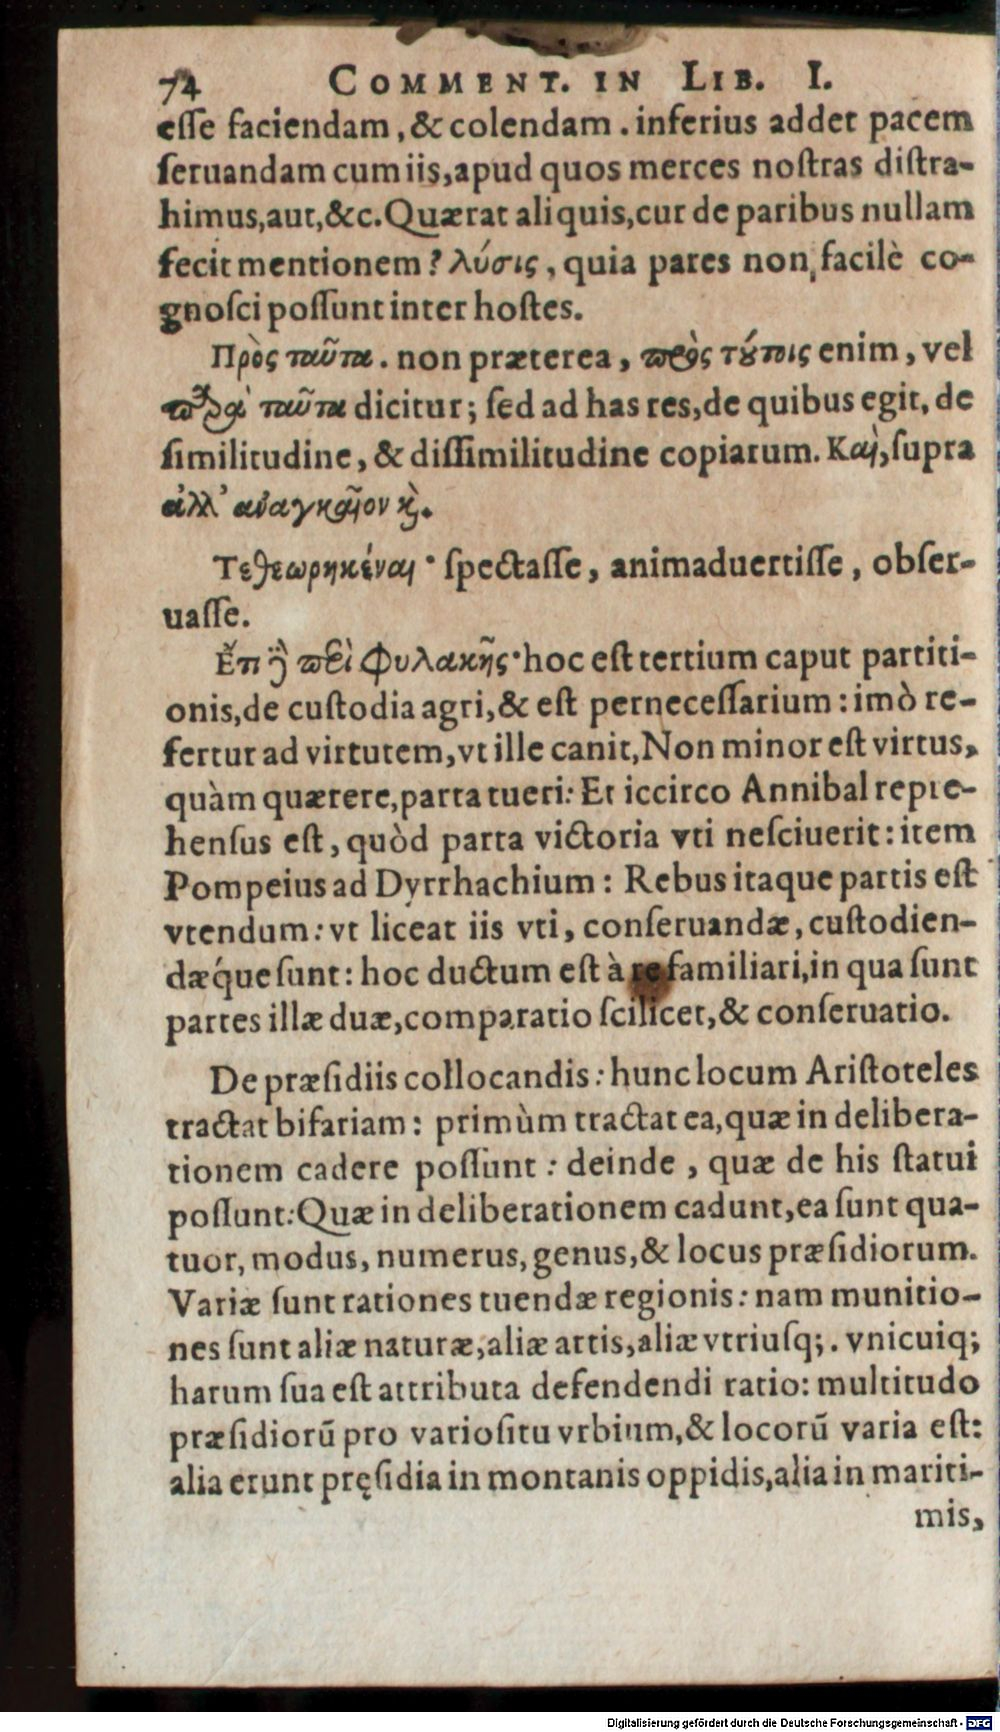 74 COMMENT. IN LIB. I.
eſſe faciendam, & colendam. inferius addet pacem
ſeruandam cum iis, apud quos merces noſtras diſtra-
himus, aut, &c. Quærat aliquis, cur de paribus nullam
fecit mentionem? λύσις, quia pares non facilè co-
gnoſci poſſunt inter hoſtes.
Πρὸς ταῦτα. non præterea, πρὸς τούτοις enim, vel
παρὰ ταῦτα dicitur; ſed ad has res, de quibus egit, de
ſimilitudine, & diſſimilitudine copiarum. Καὶ, ſupra
ἀλλ' ἀναγκαῖον καὶ.
Τεθεωρηκέναι· ſpectaſſe, animaduertiſſe, obſer-
uaſſe.
Ἔτι δὲ περὶ φυλακῆς· hoc eſt tertium caput partiti-
onis, de cuſtodia agri, & eſt perneceſſarium: imò re-
fertur ad virtutem, vt ille canit, Non minor eſt virtus,
quàm quærere, parta tueri: Et iccirco Annibal repre-
henſus eſt, quòd parta victoria vti neſciuerit: item
Pompeius ad Dyrrhachium: Rebus itaque partis eſt
vtendum: vt liceat iis vti, conſeruandæ, cuſtodien-
dǽque ſunt: hoc ductum eſt à re familiari, in qua ſunt
partes illæ duæ, comparatio ſcilicet, & conſeruatio.
De præſidiis collocandis: hunc locum Ariſtoteles
tractat bifariam: primùm tractat ea, quæ in delibera-
tionem cadere poſſunt: deinde, quæ de his ſtatui
poſſunt: Quæ in deliberationem cadunt, ea ſunt qua-
tuor, modus, numerus, genus, & locus præſidiorum.
Variæ ſunt rationes tuendæ regionis: nam munitio-
nes ſunt aliæ naturæ, aliæ artis, aliæ vtriuſq;. vnicuiq;
harum ſua eſt attributa defendendi ratio: multitudo
præſidiorũ pro vario ſitu vrbium, & locorũ varia eſt:
alia erunt pręſidia in montanis oppidis, alia in mariti-
mis,
Digitalisierung gefördert durch die Deutsche Forschungsgemeinschaft - DFG